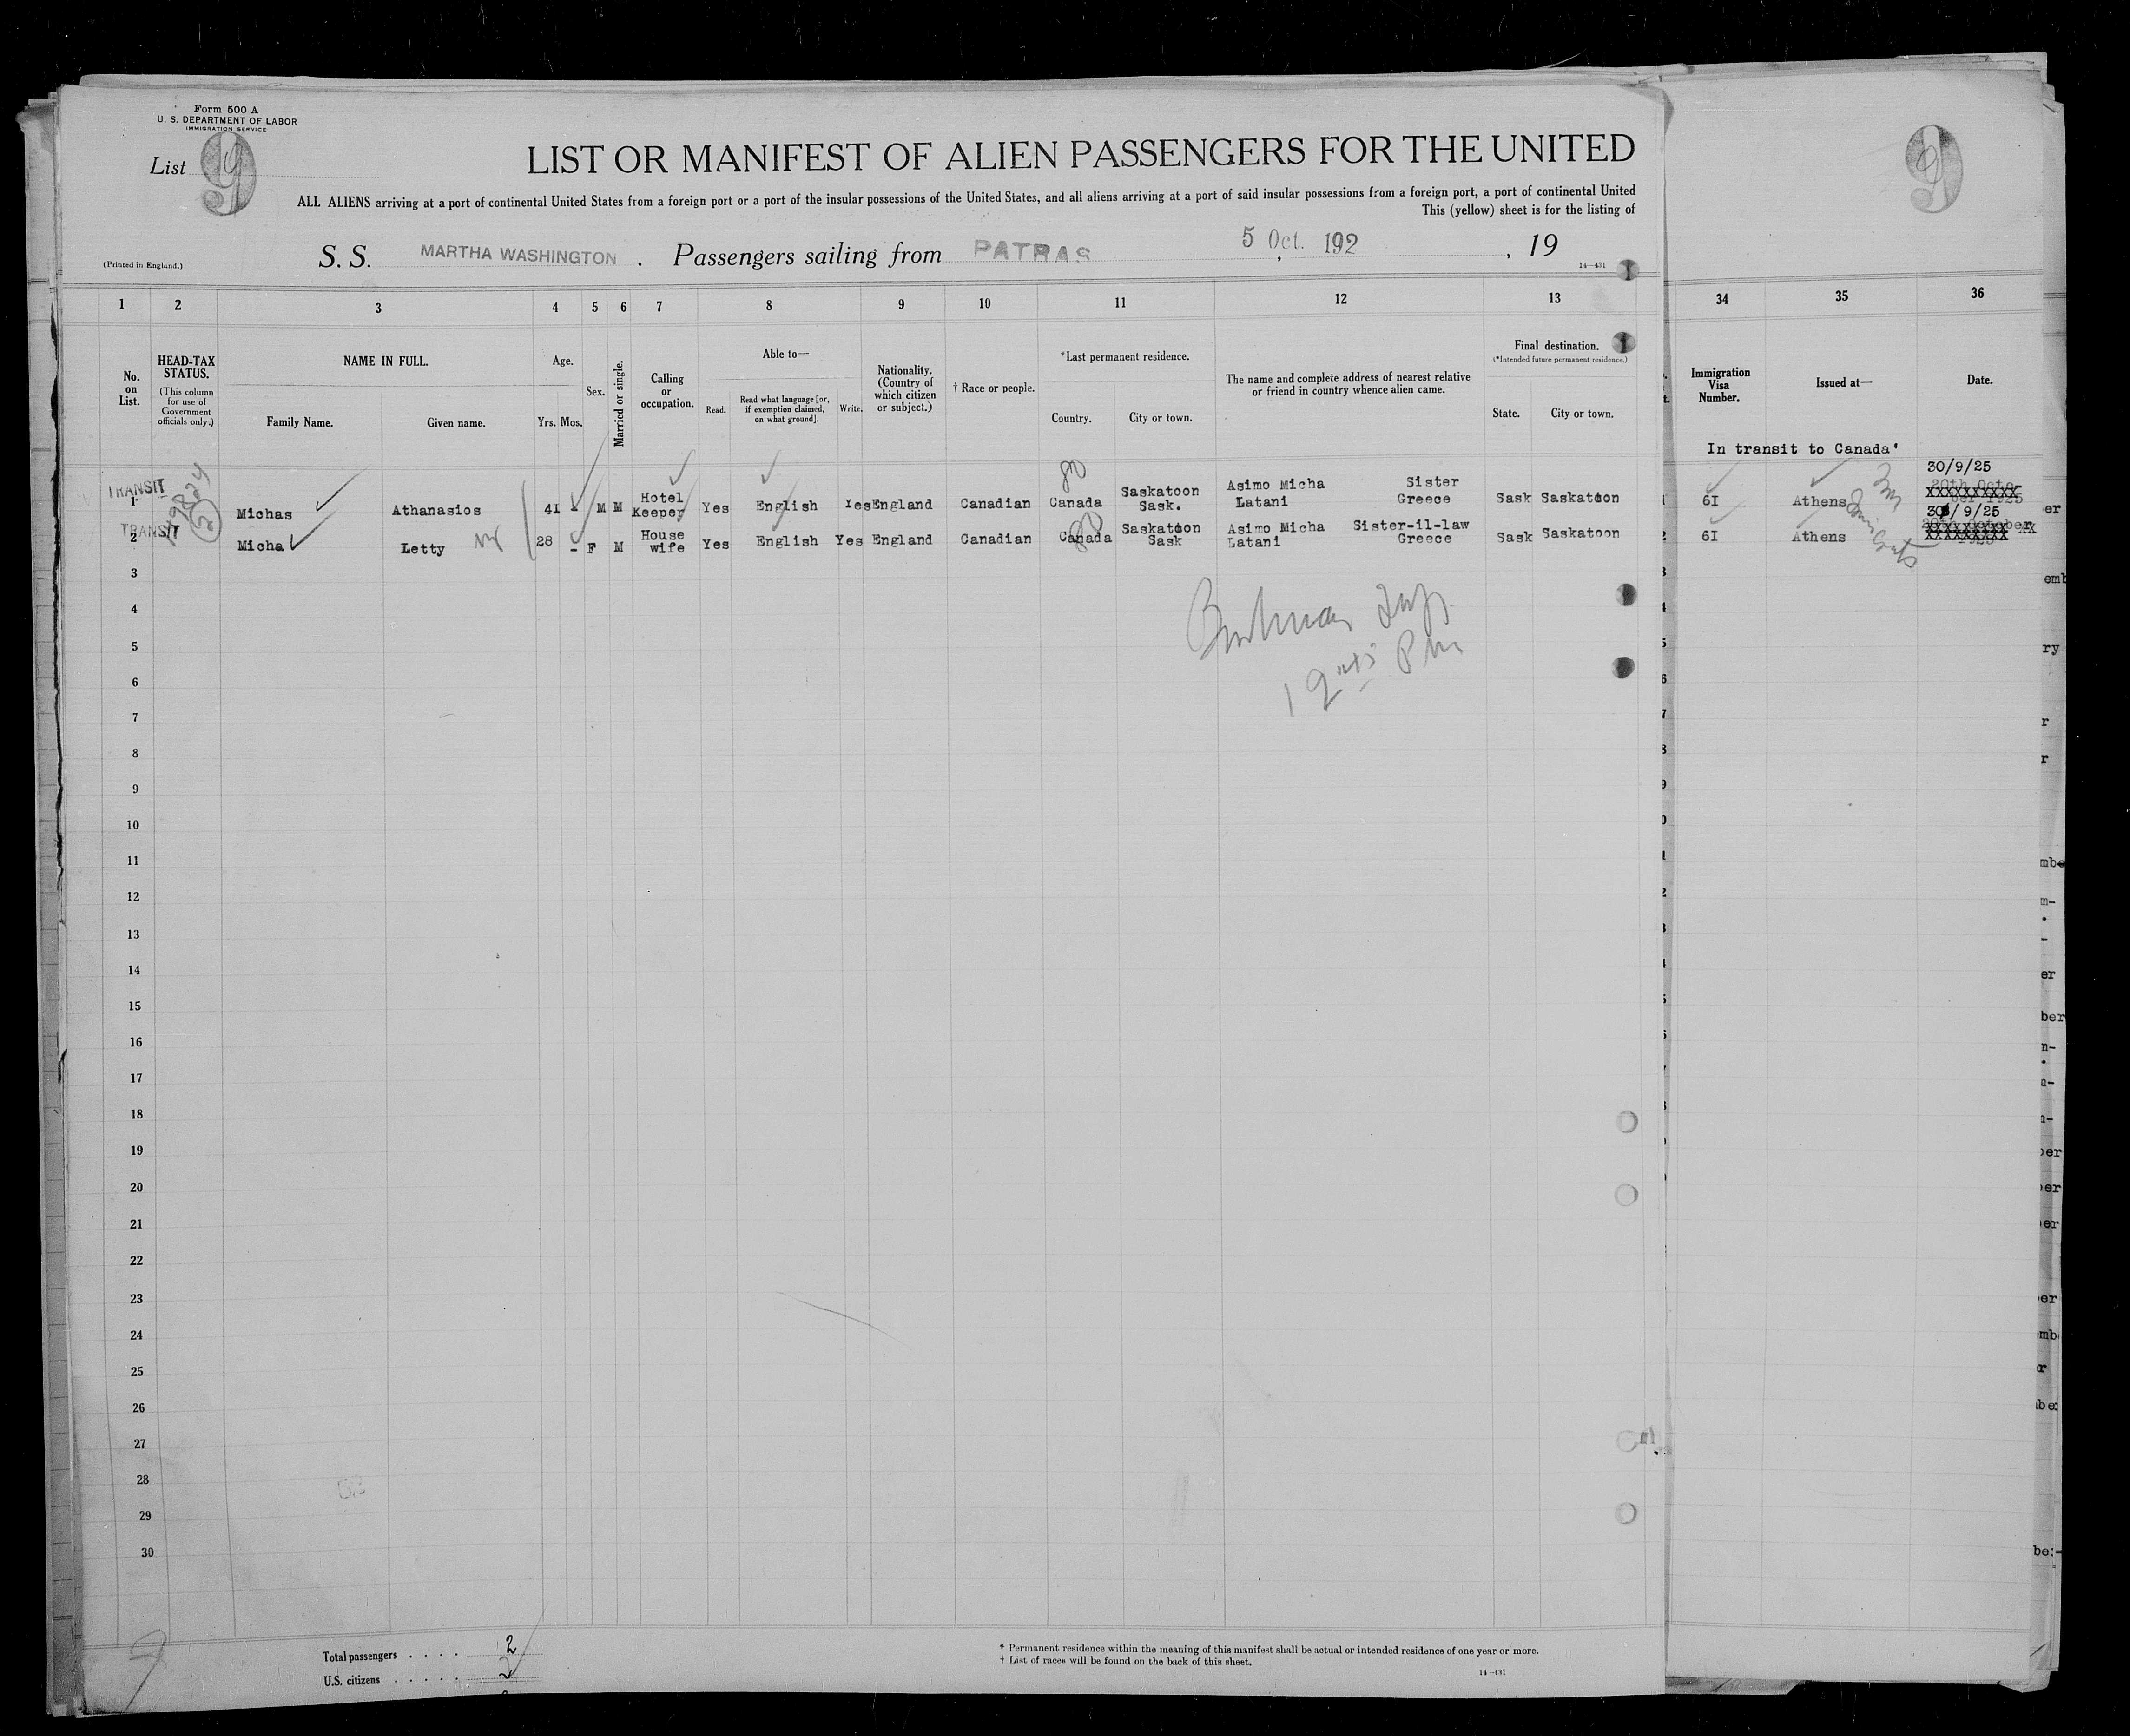 Form 500 A
U. S. DEPARTMENT OF LABOR
IMMIGRATION SERVICE
List 9
9
LIST OR MANIFEST OF ALIEN PASSENGERS FOR THE UNITED
ALL ALIENS arriving at a port of continental United States from a foreign port or a port of the insular possessions of the United States, and all aliens arriving at a port of said insular possessions from a foreign port, a port of continental United
This (yellow) sheet is for the listing of
(Printed in England.)
S. S. MARTHA WASHINGTON . Passengers sailing from PATRAS , 5 Oct. 192 , 19
14—431
1 2 3 4 5 6 7 8 9 10 11 12 13 34 35 36
No. on List.
HEAD-TAX STATUS.
(This column for use of Government officials only.)
NAME IN FULL.
Family Name. Given name.
Age.
Yrs. Mos.
Sex.
Married or single.
Calling or occupation.
Able to—
Read. Read what language [or, if exemption claimed, on what ground]. Write.
Nationality. (Country of which citizen or subject.)
† Race or people.
*Last permanent residence.
Country. City or town.
The name and complete address of nearest relative or friend in country whence alien came.
Final destination.
(*Intended future permanent residence.)
State. City or town.
Immigration Visa Number.
Issued at—
Date.
In transit to Canada'
TRANSIT
1 Michas Athanasios 41 - M M Hotel Keeper Yes English Yes England Canadian Canada Saskatoon Sask. Asimo Micha Sister Latani Greece Sask Saskatoon 61 Athens 30/9/25
TRANSIT
2 Micha Letty 28 - F M House wife Yes English Yes England Canadian Canada Saskatoon Sask Asimo Micha Sister-il-law Latani Greece Sask Saskatoon 61 Athens 30/9/25
3
4
5
6
7
8
9
10
11
12
13
14
15
16
17
18
19
20
21
22
23
24
25
26
27
28
29
30
Total passengers . . . . 2
U.S. citizens . . . . .
* Permanent residence within the meaning of this manifest shall be actual or intended residence of one year or more.
† List of races will be found on the back of this sheet.
14—431